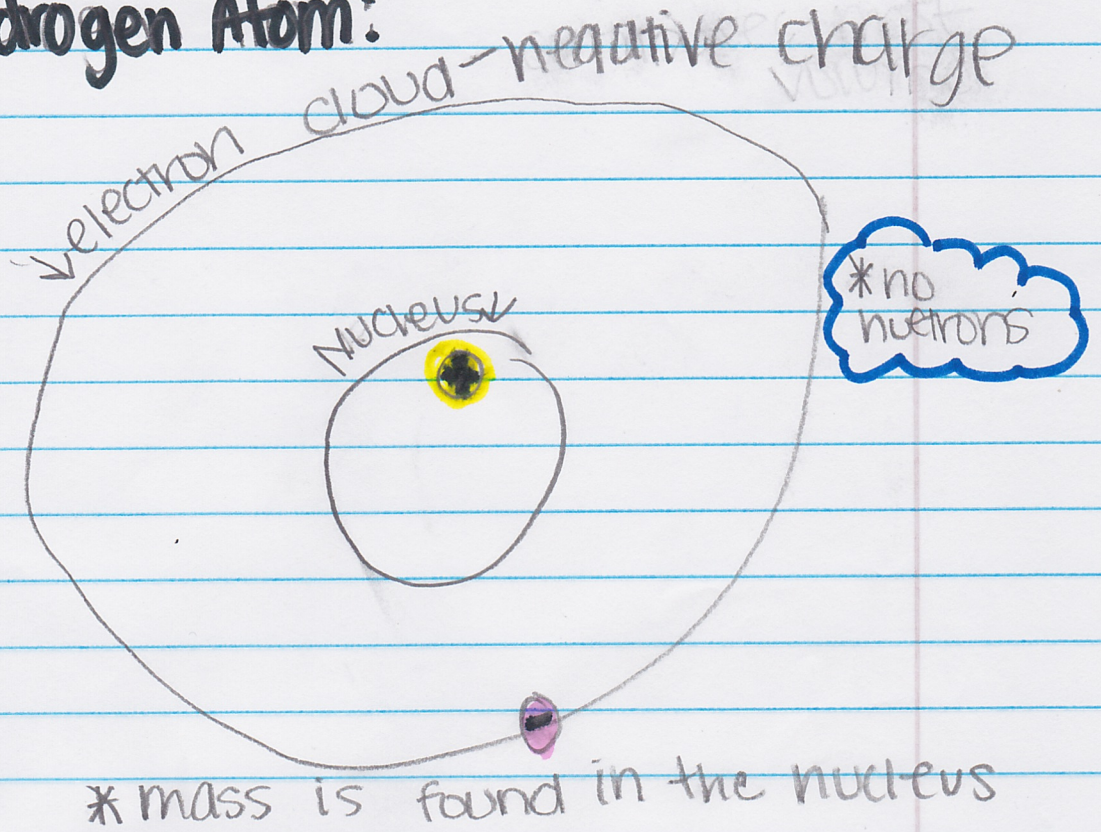 drogen Atom:
electron cloud-negative charge
Nucleus
*no
nuetrons
*mass is found in the nucleus